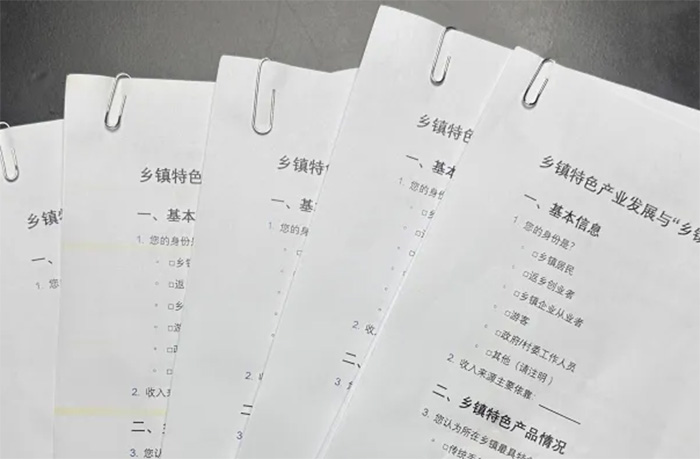 乡镇特色
一、
1. 您
乡镇特色
一、基本
1. 您的身份是
□乡镇
□返
□乡
□游
□政
□其
2. 收入来
二、
3. 您认
乡镇特色
一、基本
1. 您的身
□
□
2.
二
3.
乡镇特色
一、基本
1. 您的身份
□乡
□返
□
2. 收入
二、
3. 您
乡镇特色产业发展与“乡镇
一、基本信息
1. 您的身份是?
□乡镇居民
□返乡创业者
□乡镇企业从业者
□游客
□政府/村委工作人员
□其他（请注明）
2. 收入来源主要依靠:
二、乡镇特色产品情况
3. 您认为所在乡镇最具特色
□传统手